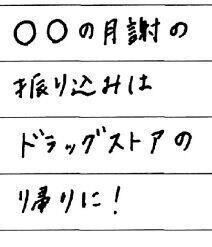 〇〇の月謝の
振り込みは
ドラッグストアの
帰りに!